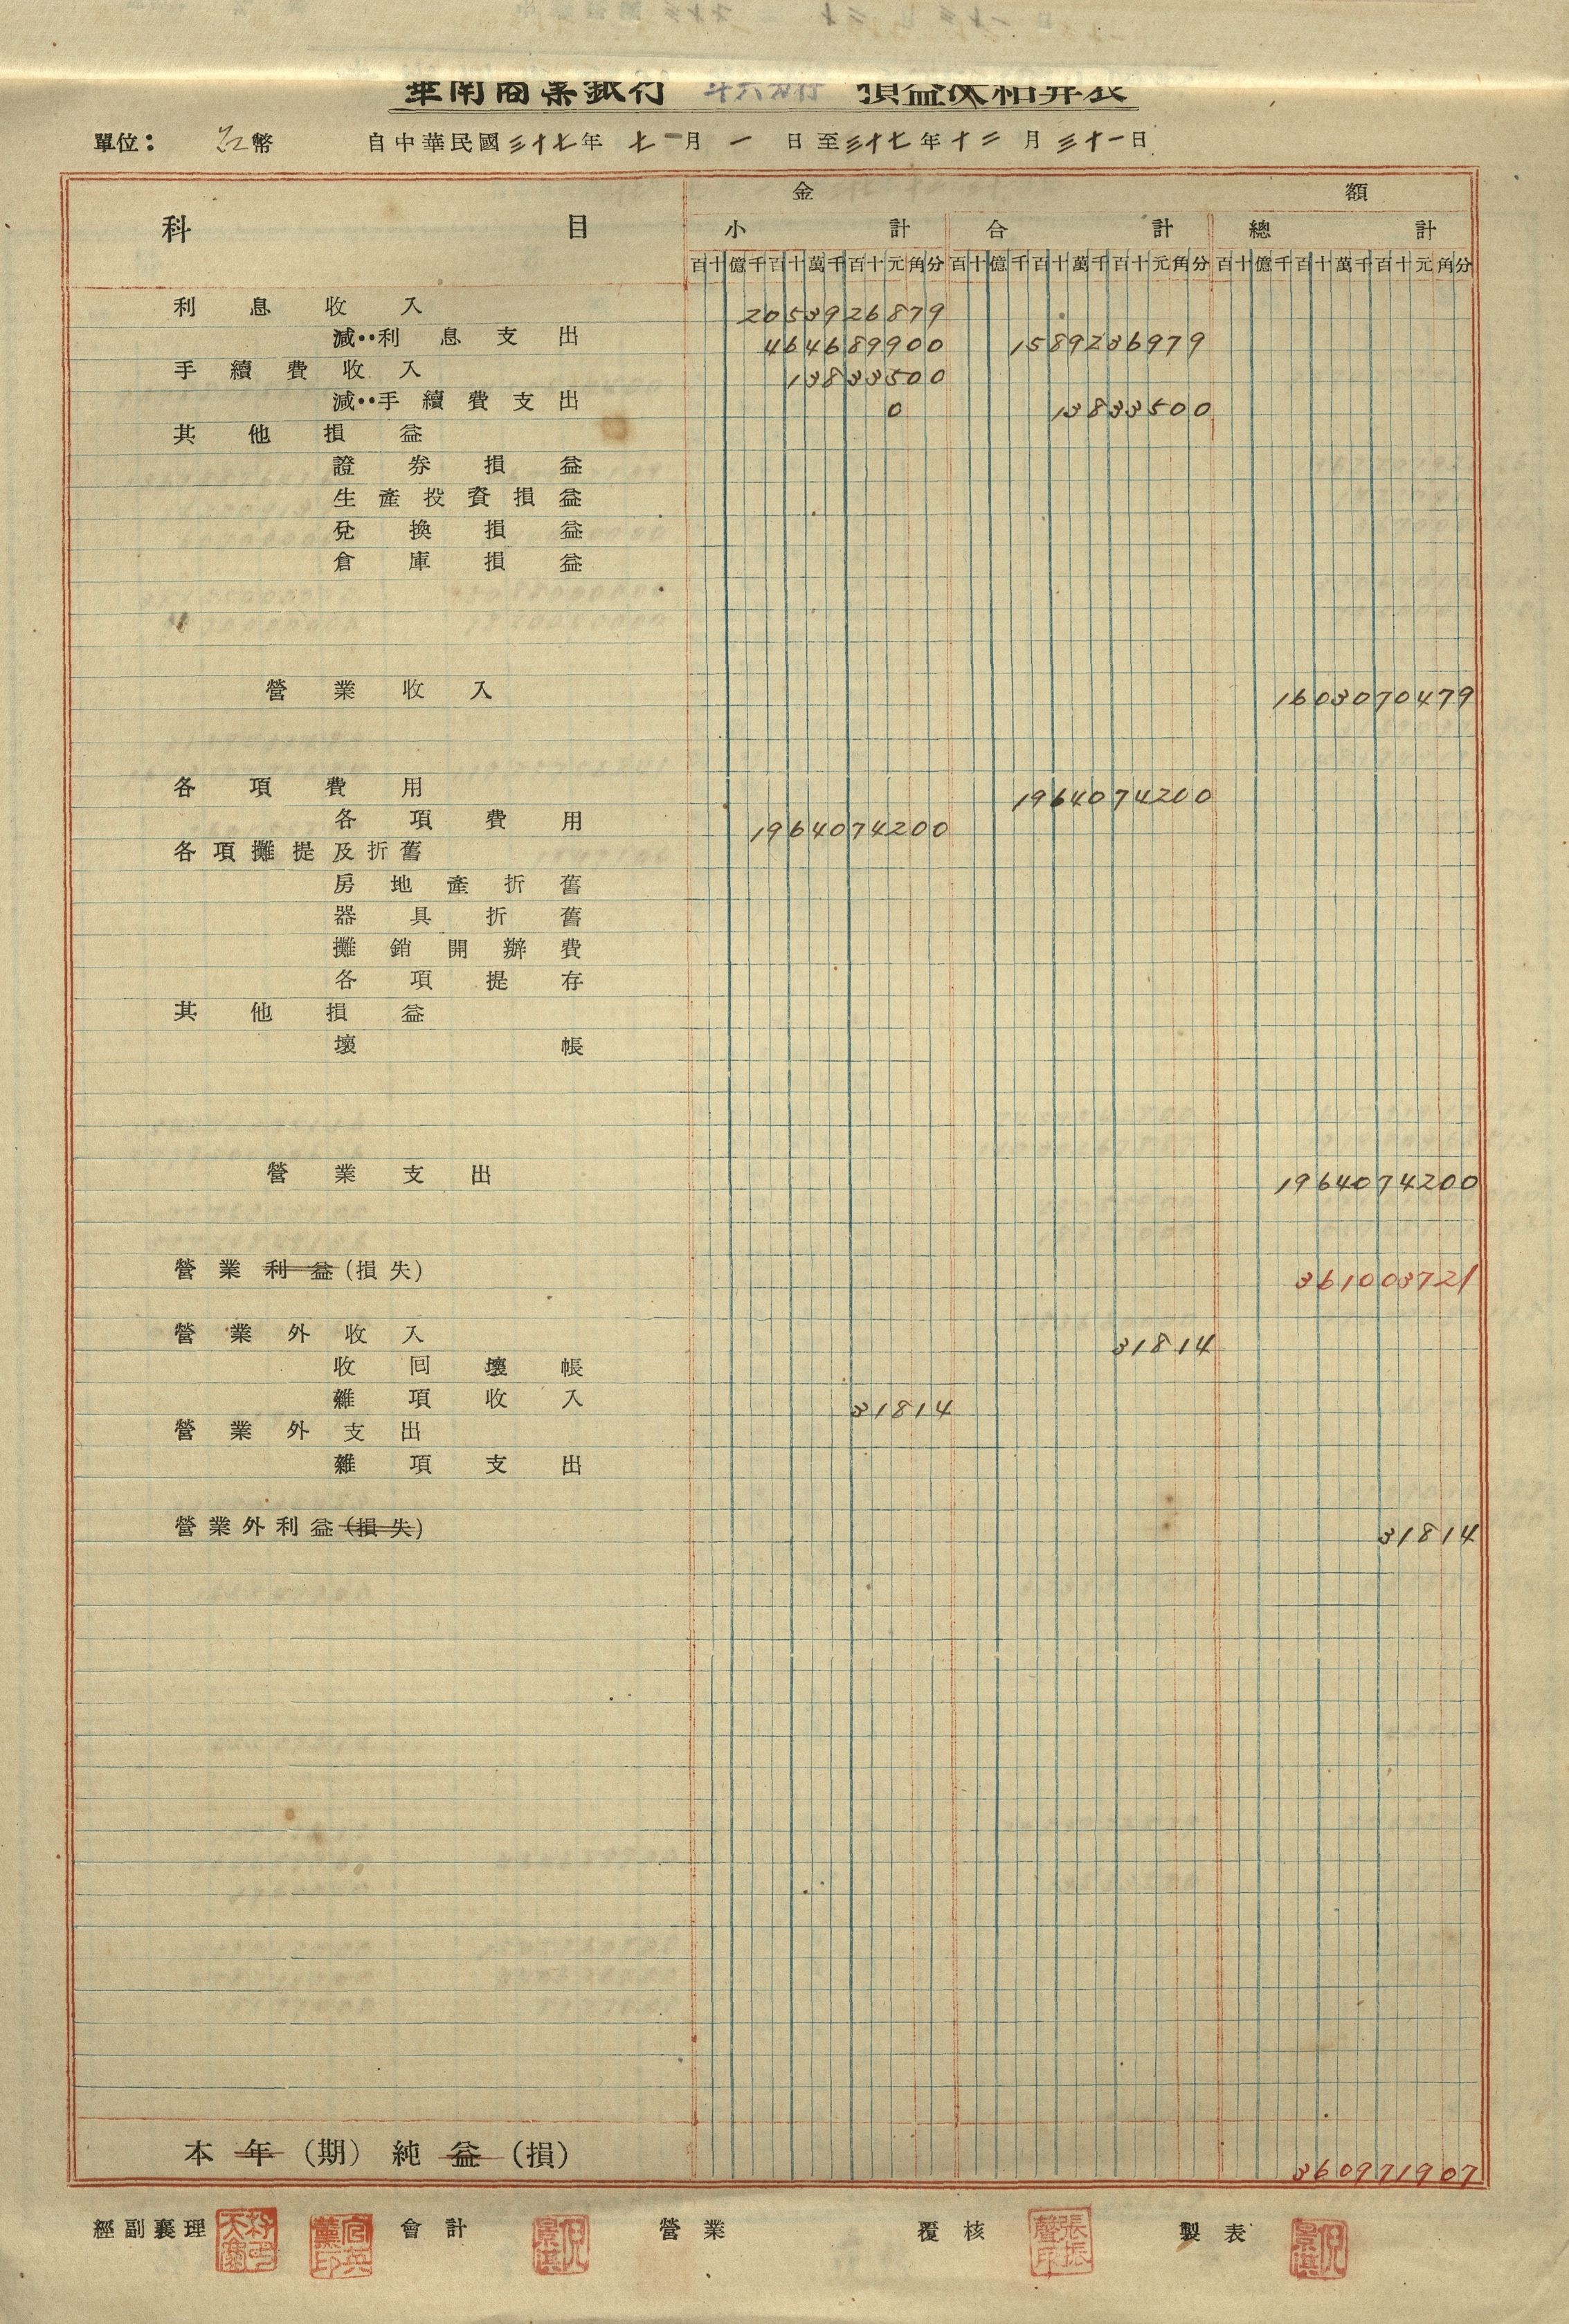 華南商業銀行 斗六分行 損益決結算表
單位： 幣 自中華民國三十七年 七 月 一 日至三十七年十二月三十一日
科目 金額
小計 合計 總計
百十億千百十萬千百十元角分 百十億千百十萬千百十元角分 百十億千百十萬千百十元角分
利息收入 2053926879
減‥利息支出 464689900 1589236979
手續費收入 13833500
減‥手續費支出 0 13833500
其他損益
證券損益
生產投資損益
兌換損益
倉庫損益
營業收入 1603070479
各項費用 1964074200
各項費用 1964074200
各項攤提及折舊
房地產折舊
器具折舊
攤銷開辦費
各項提存
其他損益
壞帳
營業支出 1964074200
營業利益(損失) 361003721
營業外收入 31814
收回壞帳
雜項收入 31814
營業外支出
雜項支出
營業外利益(損失) 31814
本年(期)純益(損) 360971907
經副襄理 會計 營業 覆核 製表